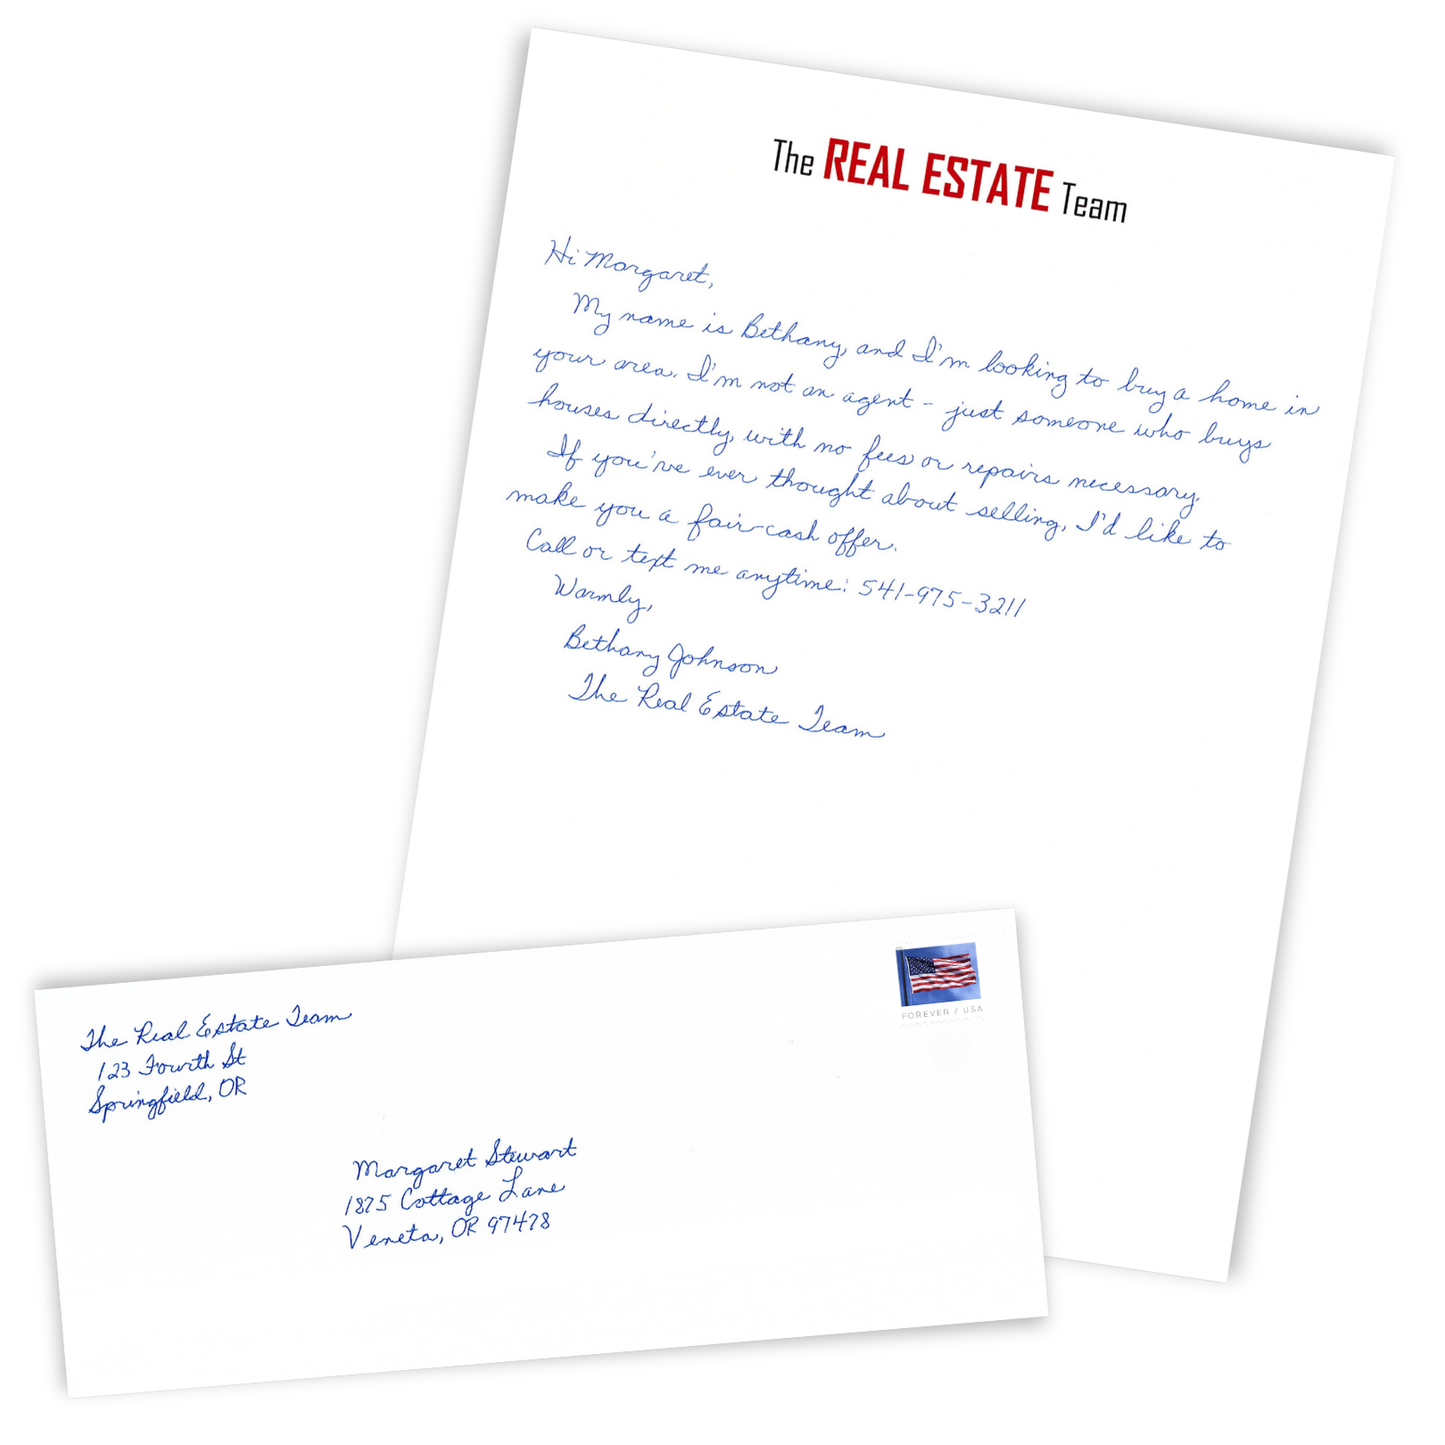 The REAL ESTATE Team
Hi Margaret,
My name is Bethany, and I'm looking to buy a home in
your area. I'm not an agent - just someone who buys
houses directly, with no fees or repairs necessary.
If you've ever thought about selling, I'd like to
make you a fair-cash offer.
Call or text me anytime: 541-975-3211
Warmly,
Bethany Johnson
The Real Estate Team
The Real Estate Team
123 Fourth St
Springfield, OR
FOREVER / USA
Margaret Stewart
1875 Cottage Lane
Veneta, OR 97478